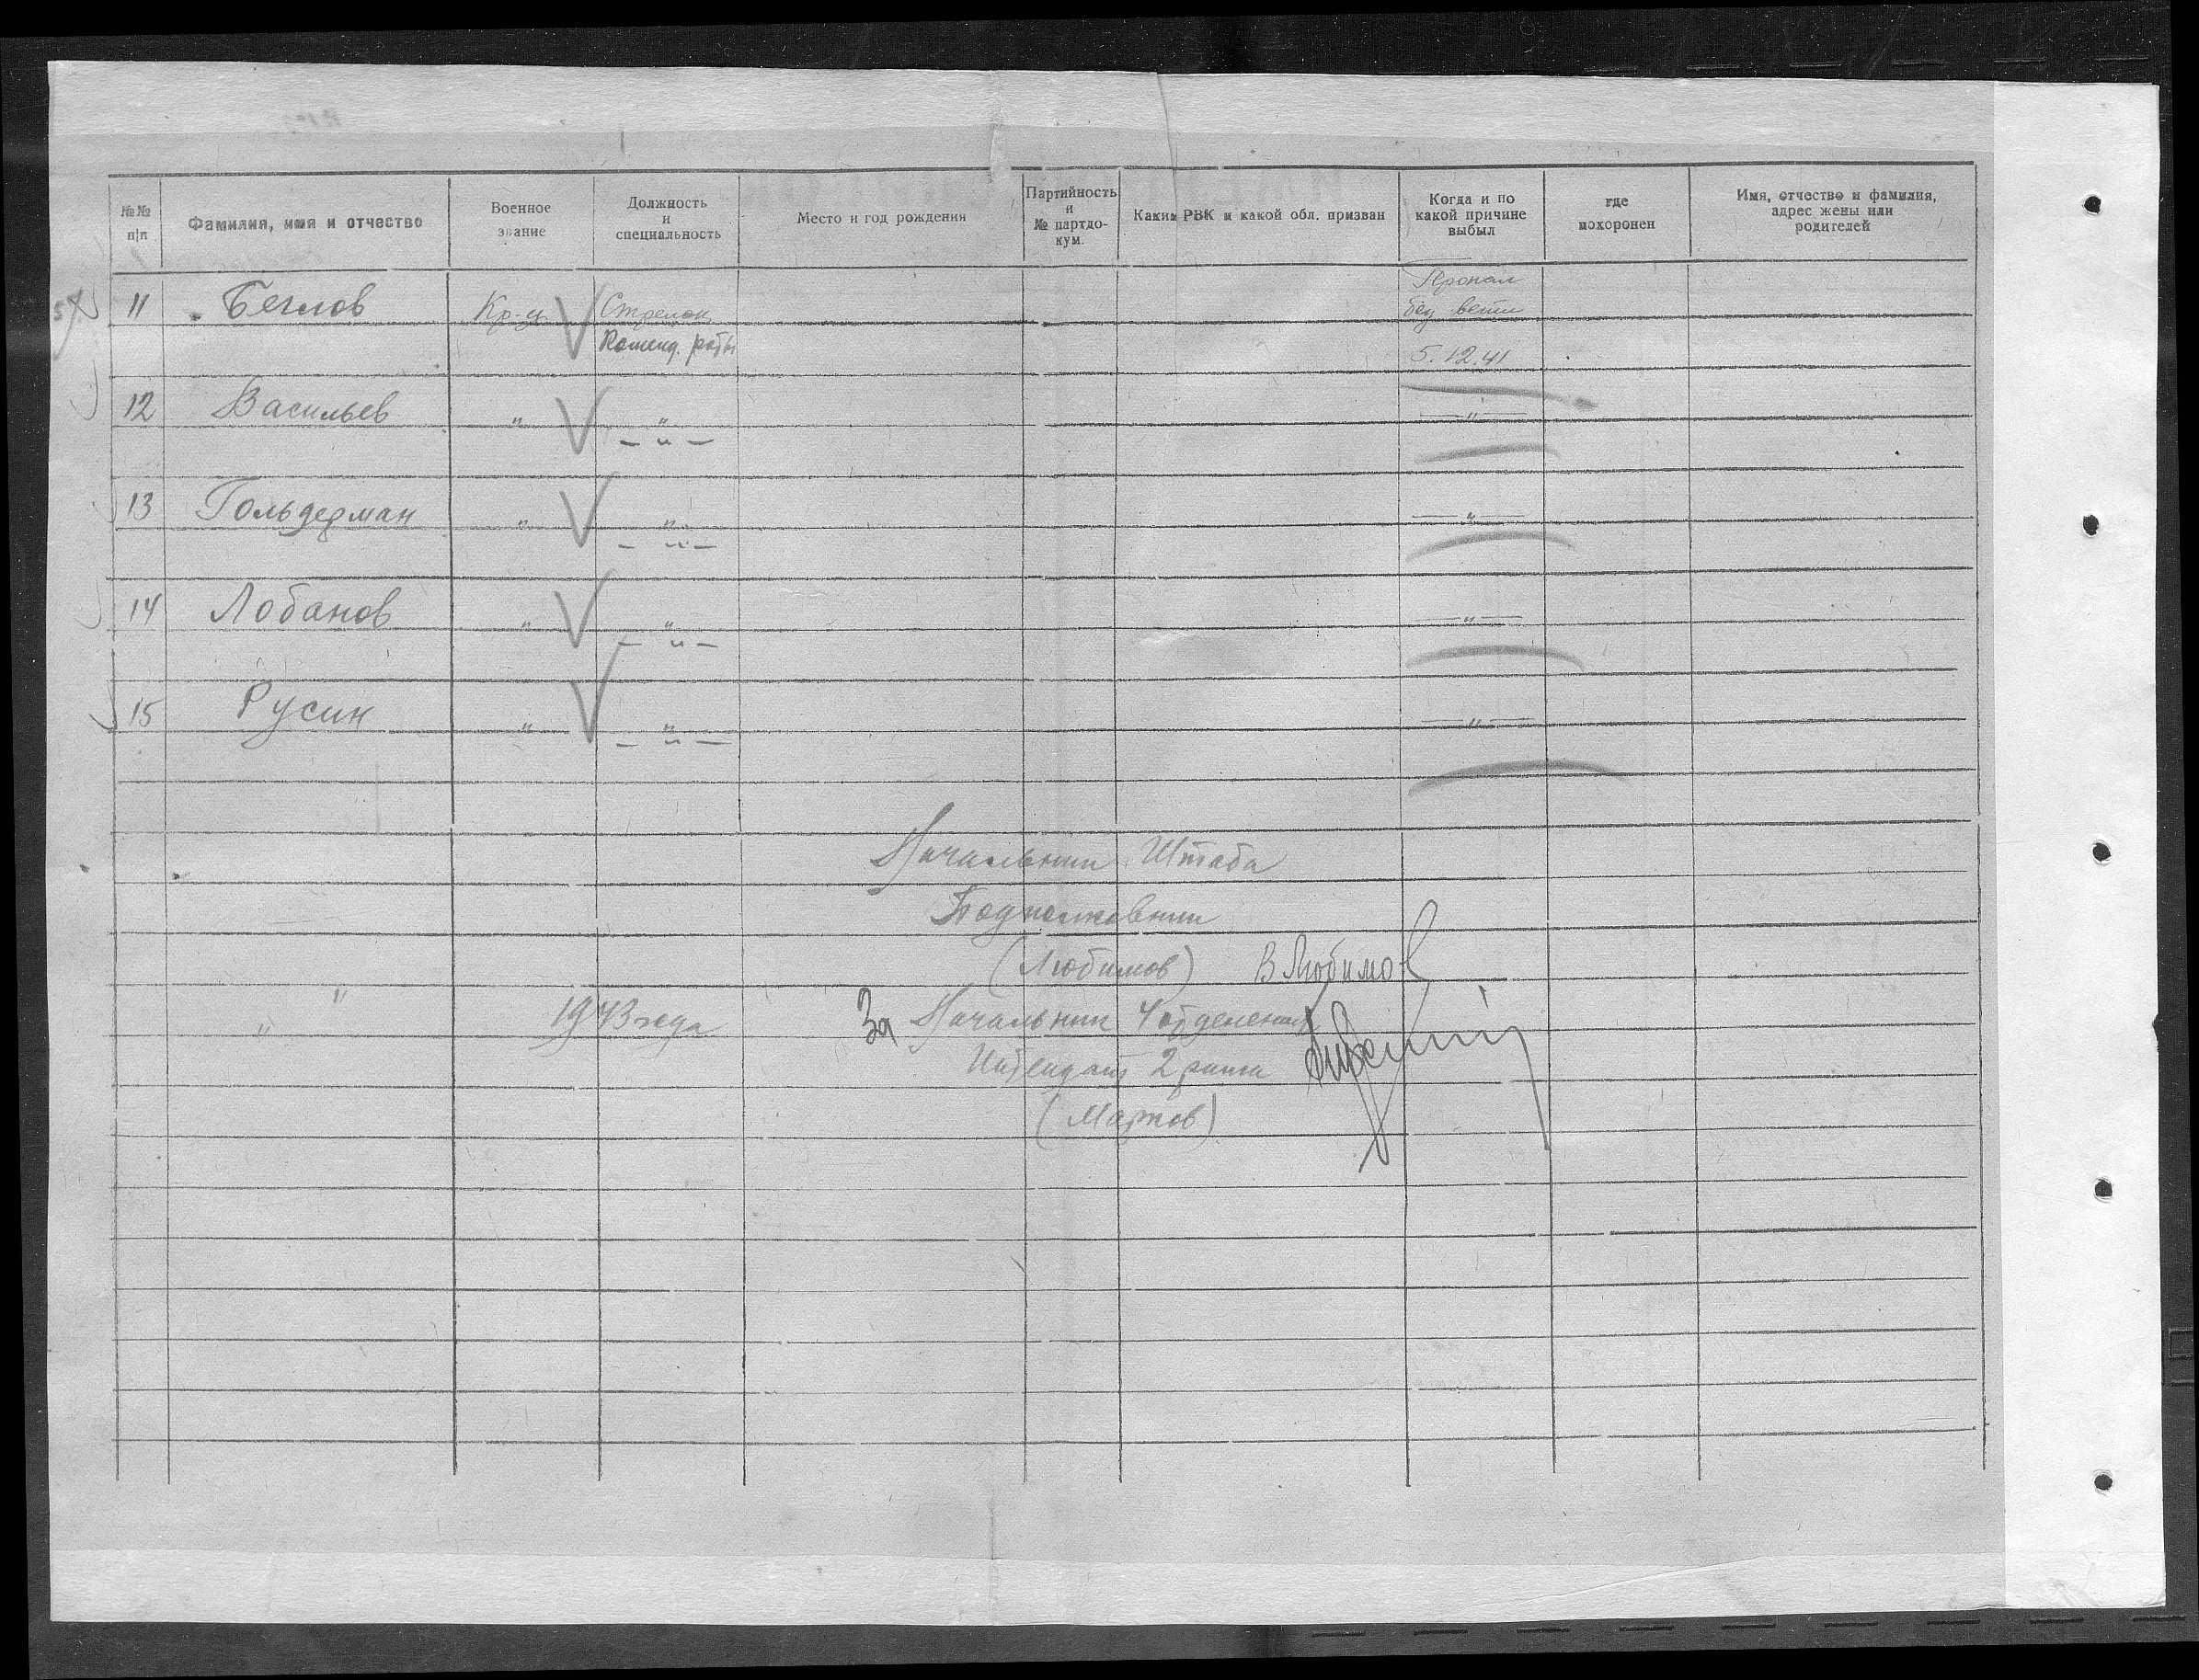 №№ п/п Фамилия, имя и отчество Военное звание Должность и специальность Место и год рождения Партийность и № партдокум. Каким РВК и какой обл. призван Когда и по какой причине выбыл где похоронен Имя, отчество и фамилия, адрес жены или родителей
11 Беглов Кр-ц Стрелок Пропал
Команд. роты без вести
5.12.41
12 Васильев " " — " —
— " —
13 Гольдерман " " — " —
— " —
14 Лобанов " " — " —
— " —
15 Русин " " — " —
— " —
Начальник Штаба
Подполковник
(Любимов) В Любимов
" " 1943 года За Начальник 4 отделения
Интендант 2 ранга
(Марков)